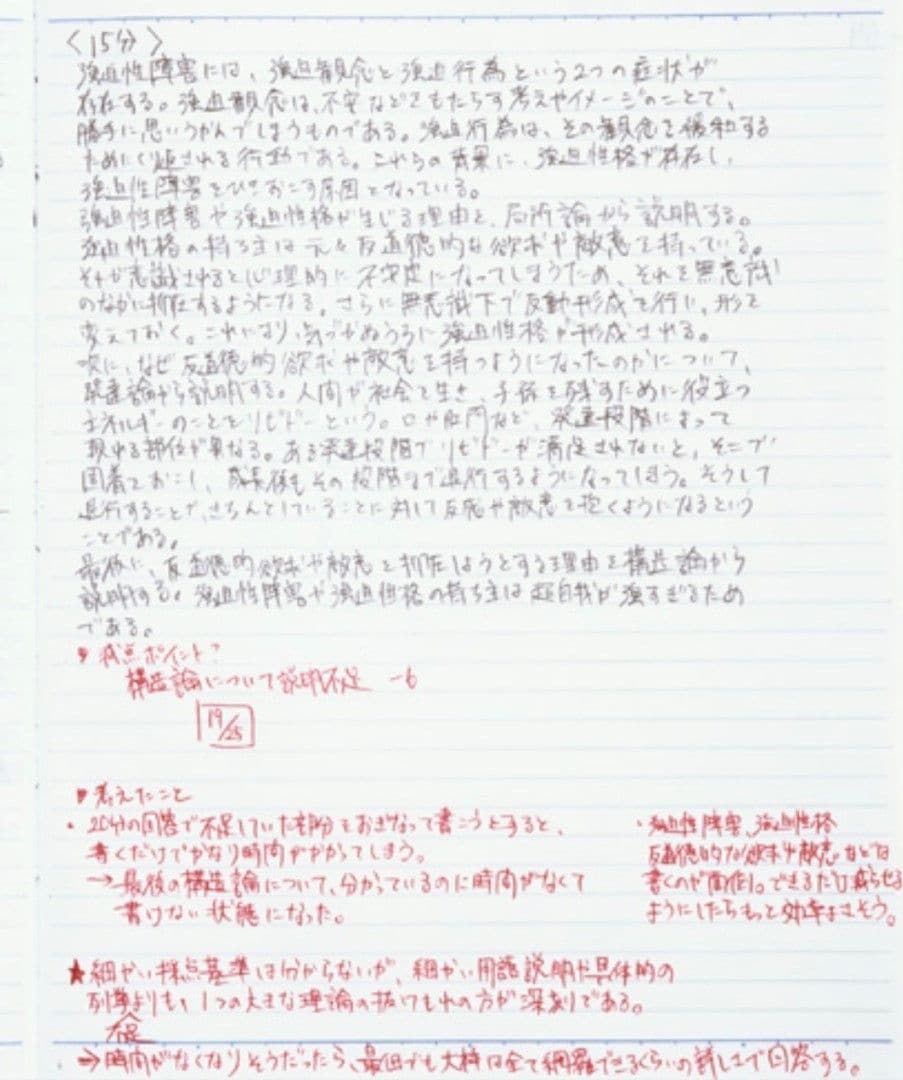 〈15分〉
強迫性障害には、強迫観念と強迫行為という2つの症状が
存在する。強迫観念は、不安などをもたらす考えやイメージのことで、
勝手に思いうかんでしまうものである。強迫行為は、その観念を緩和する
ためにくり返される行動である。これらの背景に、強迫性格が存在し、
強迫性障害をひきおこす原因となっている。
強迫性障害や強迫性格が生じる理由を、局所論から説明する。
強迫性格の持ち主は元々反道徳的な欲求や敵意を持っている。
それが意識されると心理的に不安定になってしまうため、それを無意識
のなかに抑圧するようになる。さらに無意識下で反動形成を行い、形を
変えておく。これにより、気づかぬうちに強迫性格が形成される。
次に、なぜ反道徳的欲求や敵意を持つようになったのかについて、
発達論から説明する。人間が社会を生き、子孫を残すために役立つ
エネルギーのことをリビドーという。口や肛門など、発達段階によって
現れる部位が異なる。ある発達段階でリビドーが満足されないと、そこで
固着をおこし、成長後もその段階まで退行するようになってしまう。そうして
退行することで、きちんとしていることに対して反感や敵意を抱くようになるという
ことである。
最後に、反道徳的欲求や敵意を抑圧しようとする理由を構造論から
説明する。強迫性障害や強迫性格の持ち主は超自我が強すぎるため
である。
減点ポイント?
構造論について説明不足 -6
19/25
考えたこと
・20分の回答で不足していた部分をおぎなって書こうとすると、
書くだけでかなり時間がかかってしまう。
→最後の構造論について、分かっているのに時間がなくて
書けない状態になった。
・強迫性障害、強迫性格
反道徳的な欲求や敵意などは
書くのが面倒。できるだけ減らせる
ようにしたらもっと効率よさそう。
★細かい採点基準は分からないが、細かい用語説明や具体的の
列挙よりも、1つの大きな理論の抜けもれの方が深刻である。
不足
⇒時間がなくなりそうだったら、最低でも大枠は全て網羅できるくらいの詳しさで回答する。